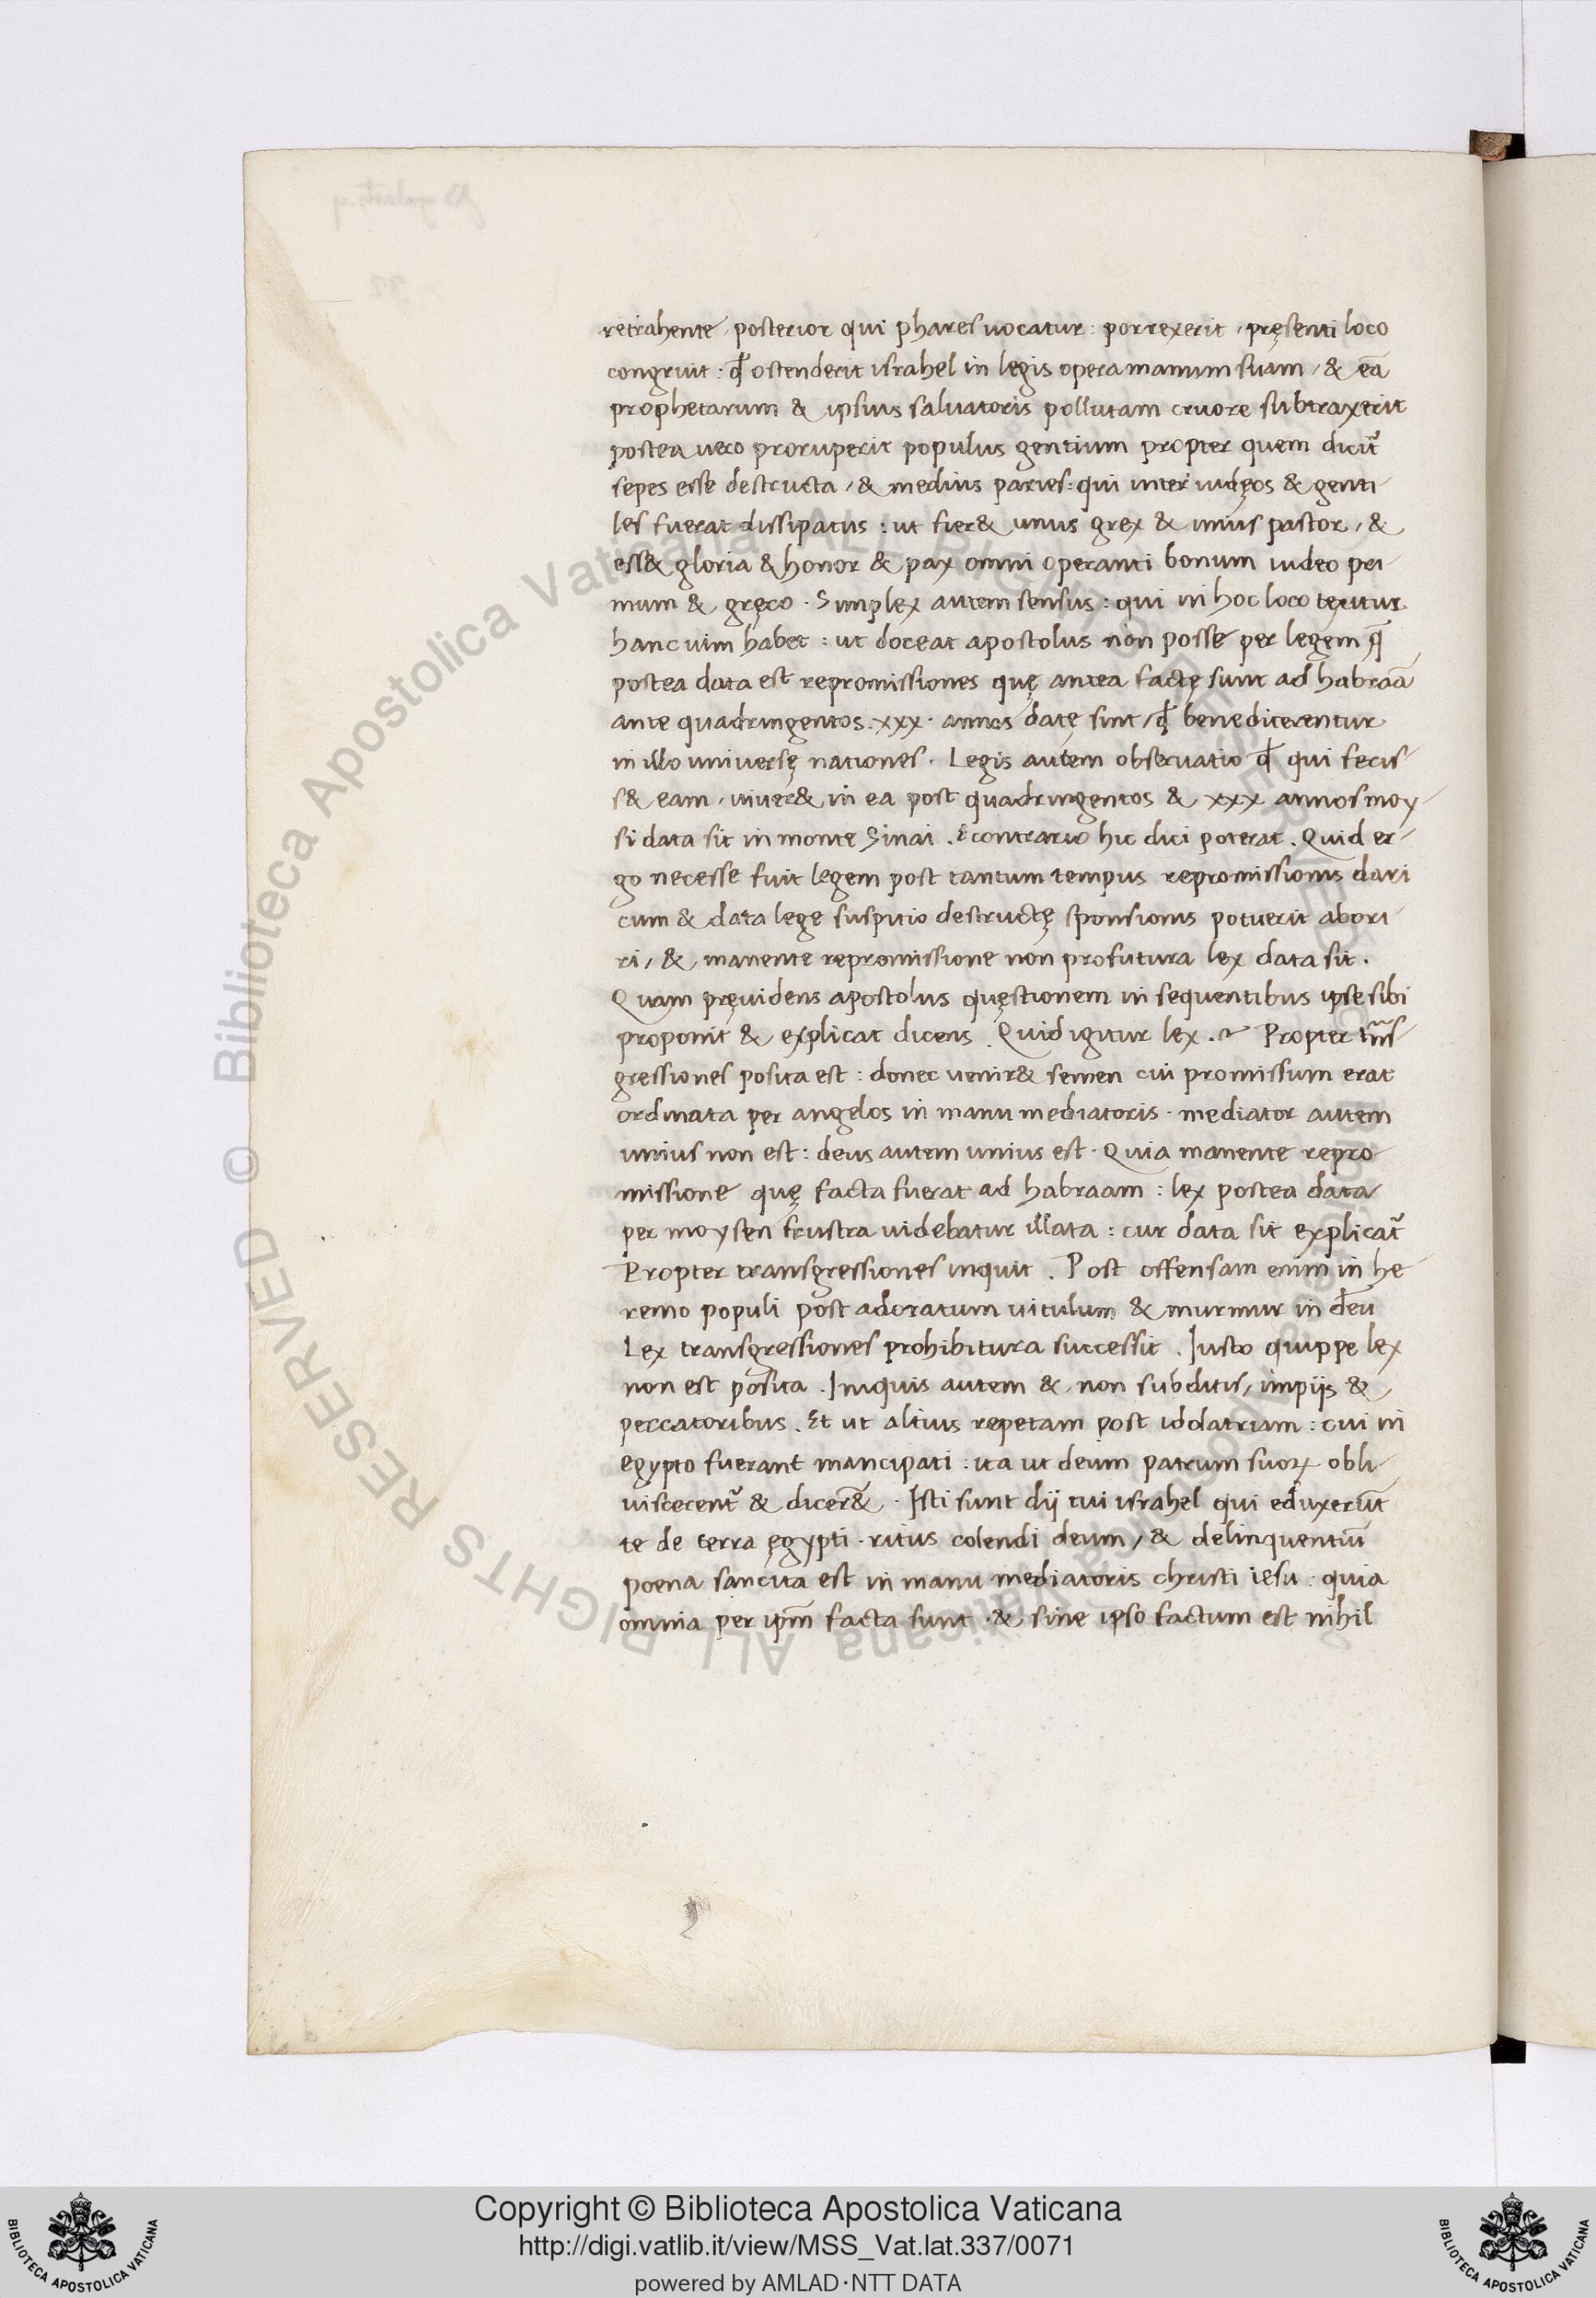 retrahente, posterior qui phares uocatur: porrexerit, pręsenti loco
congruit: qđ ostenderit israhel in legis opera manum suam, & eā
prophetarum & ipsius saluatoris pollutam cruore subtraxerit
postea uero proruperit populus gentium propter quem dicit᷑
sepes esse destructa, & medius paries: qui inter iudęos & genti-
les fuerat dissipatus: ut fier& unus grex & unus pastor, &
ess& gloria & honor & pax omni operanti bonum iudeo pri-
mum & gręco. Simplex autem sensus: qui in hoc loco texitur
hanc uim habet: ut doceat apostolus non posse per legem q̄
postea data est repromissiones quę antea factę sunt ad habraā
ante quadringentos. xxx. annos datę sint, qđ benedicerentur
in illo uniuersę nationes. Legis autem obseruatio qđ qui fecis-
s& eam, uiuer& in ea post quadringentos & xxx annos moy-
si data sit in monte Sinai. Econtrario hic dici poterat. Quid er-
go necesse fuit legem post tantum tempus repromissionis dari
cum & data lege suspitio destructę sponsionis potuerit abori-
ri, & manente repromissione non profutura lex data sit.
Quam pręuidens apostolus quęstionem in sequentibus ipse sibi
proponit & explicat dicens. Quid igitur lex.? Propter trā́s-
gressiones posita est: donec uenir& semen cui promissum erat
ordinata per angelos in manu mediatoris. mediator autem
unius non est: deus autem unius est. Quia manente repro-
missione quę facta fuerat ad habraam: lex postea data
per moysen frustra uidebatur illata: cur data sit explicat᷑
Propter transgressiones inquit. Post offensam enim in he-
remo populi post adoratum uitulum & murmur in deū
Lex transgressiones prohibitura successit. Iusto quippe lex
non est posita. Iniquis autem & non subditis, impijs &
peccatoribus. Et ut altius repetam post idolatriam: cui in
egypto fuerant mancipati: ita ut deum patrum suoꝝ obli-
uiscerent᷑ & dicer&̄. Isti sunt dij tui israhel qui eduxerūt
te de terra ęgypti. ritus colendi deum, & delinquentiū
poena sancita est in manu mediatoris christi iesu: quia
omnia per ipm̄ facta sunt. & sine ipso factum est nihil
Copyright © Biblioteca Apostolica Vaticana
http://digi.vatlib.it/view/MSS_Vat.lat.337/0071
powered by AMLAD·NTT DATA
BIBLIOTECA APOSTOLICA VATICANA
BIBLIOTECA APOSTOLICA VATICANA
© Biblioteca Apostolica Vaticana ALL RIGHTS RESERVED